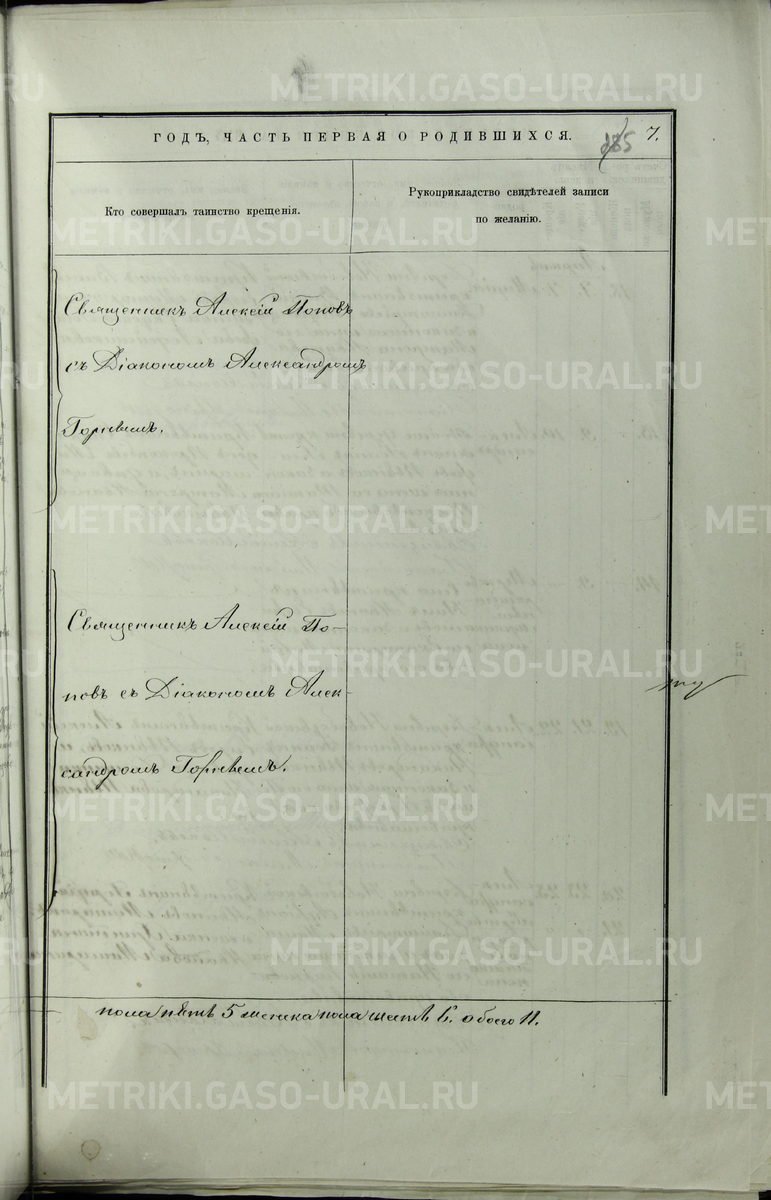 METRIKI.GASO-URAL.RU
ГОДЪ, ЧАСТЬ ПЕРВАЯ О РОДИВШИХСЯ.
285 7.
Кто совершалъ таинство крещенія.
Рукоприкладство свидѣтелей записи
по желанію.
Священникъ Алексій Поповъ
съ Діакономъ Александромъ
Горневымъ.
Священникъ Алексій По-
повъ съ Діакономъ Алек-
сандромъ Горневымъ.
пола пять 5 женска пола шесть 6. обоего 11.